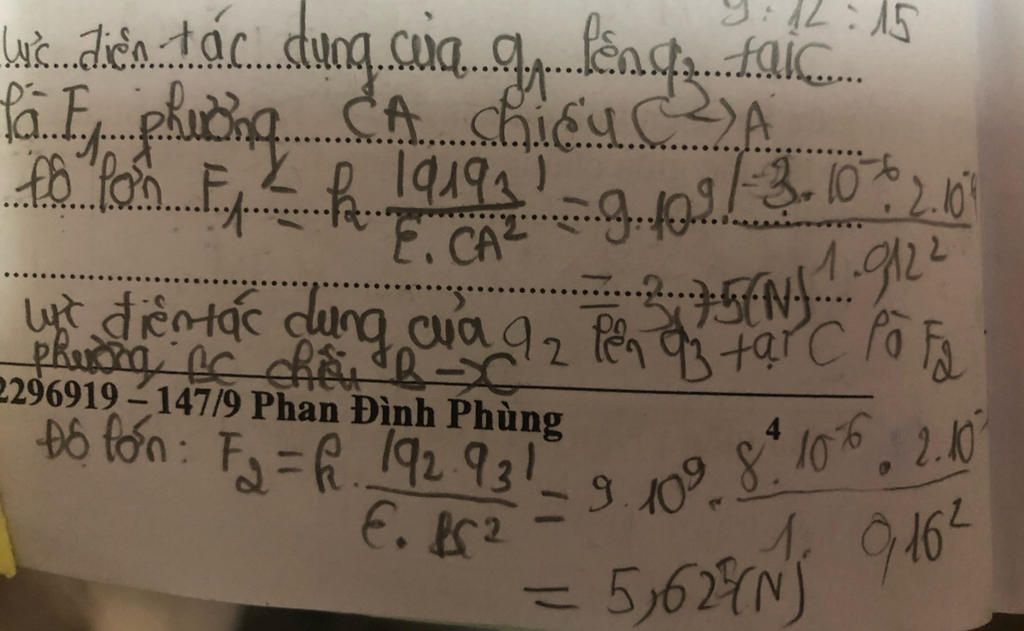 9:12:15
lực điện tác dụng của q1 lên q3 tại C
là F1 phương CA chiều C->A
độ lớn F1 = k |q1q3| / ε.CA² = 9.10⁹ |-3.10⁻⁶.2.10⁻ / 1.0,12²
= 3,75(N)
lực điện tác dụng của q2 lên q3 tại C là F2
phương BC chiều B->C
2296919 – 147/9 Phan Đình Phùng
4
Độ lớn: F2 = k. |q2.q3| / ε.BC² = 9.10⁹. 8.10⁻⁶.2.10⁻ / 1. 0,16²
= 5,625(N)